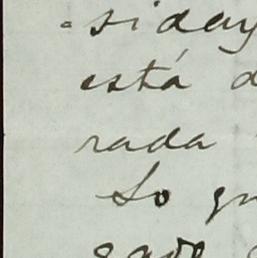 siday
está d
rada
Lo qu